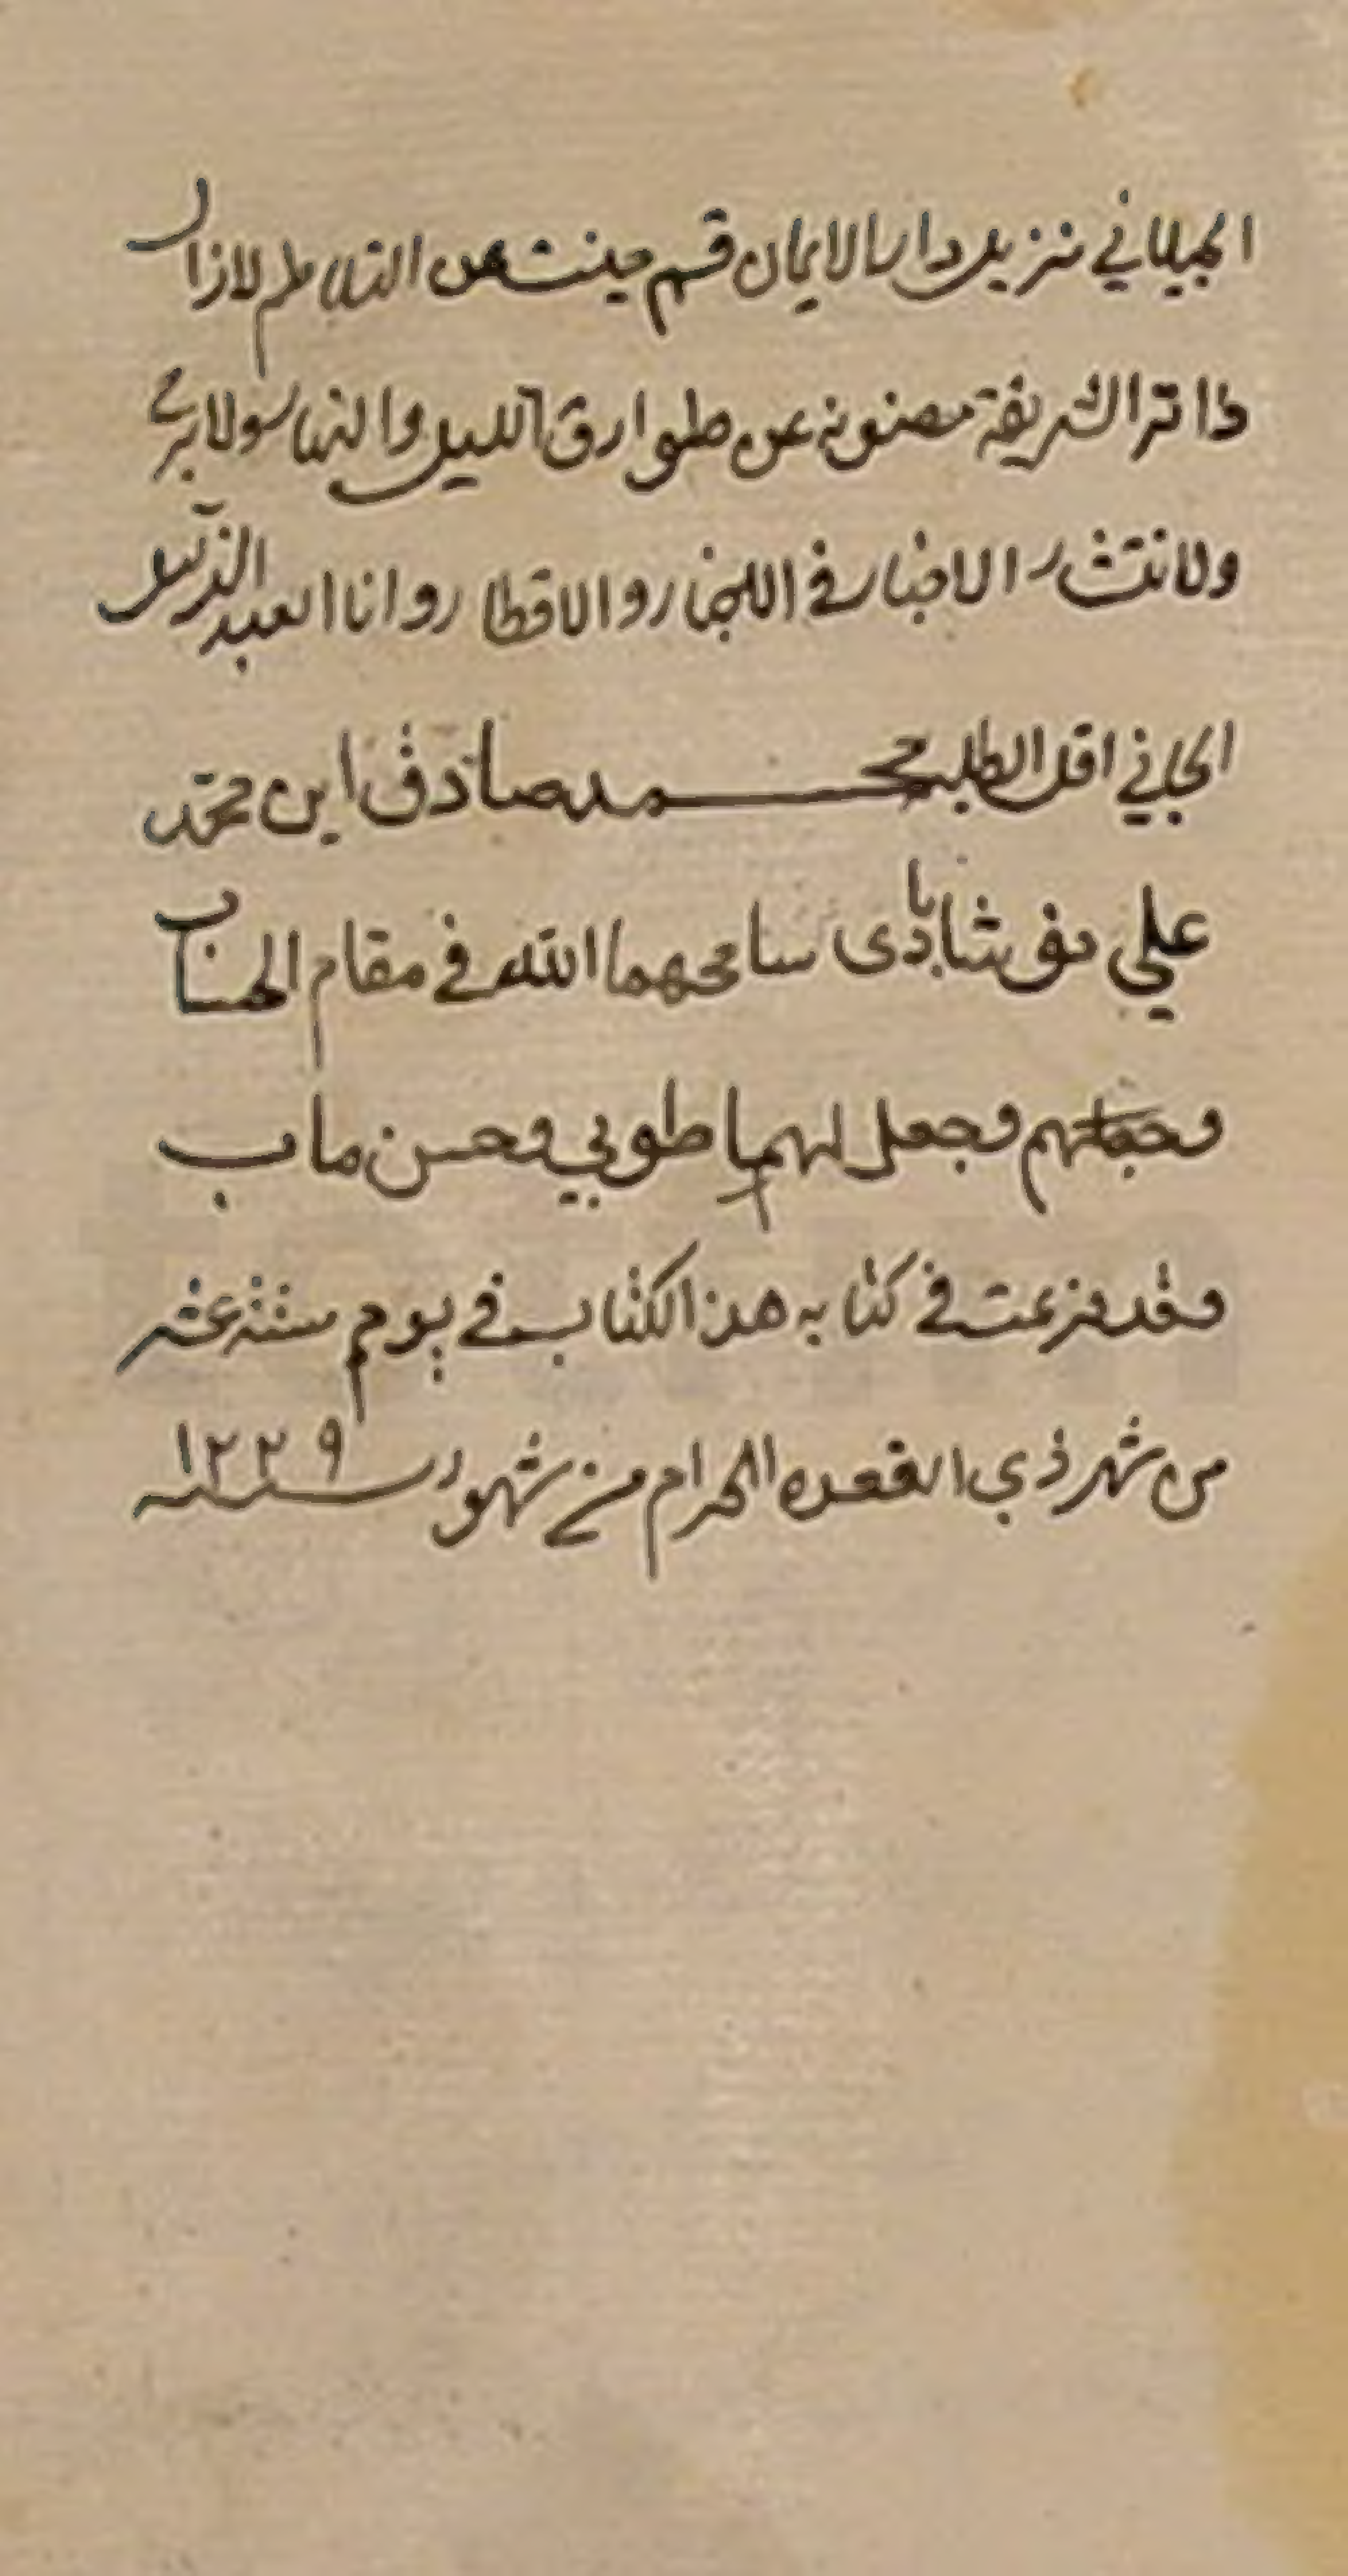 الجيلاني نزيل دار الايمان قم صينت عن التلاطم لازال
ذاته الشريفة مصونة عن طوارق الليل والنهار ولا برح
ولانتشار الاخبار في و الاقطار وانا العبد الذليل
الجاني اقل الطلبه محمد صادق ابن محمد
علي سامحهما الله في مقام الحساب
وجعل لهما طوبي وحسن ماب
وقد فزعت في كتابه هذا الكتاب في يوم ستة عشر
من شهر ذي القعده الحرام من شهور سنه ١٢٢٩